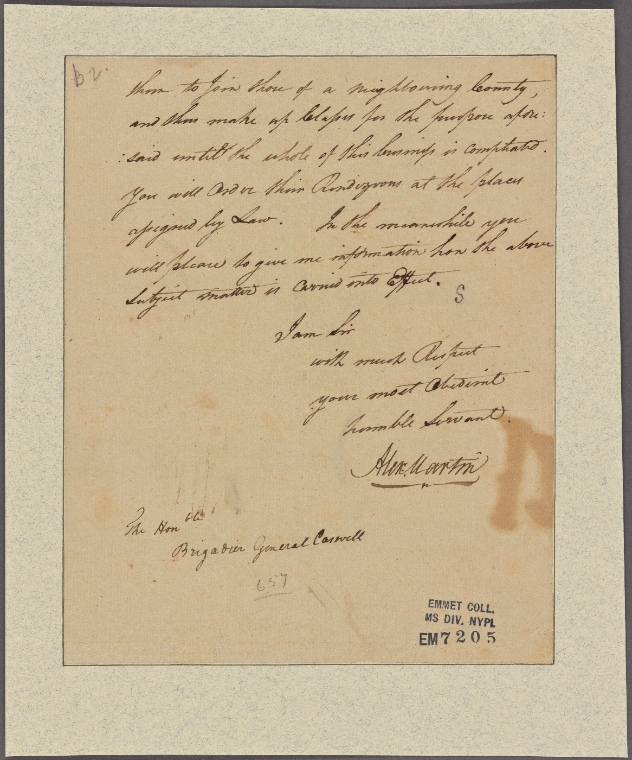 b 2.
them to join those of a neighbouring County,
and thus make up Classes for the purpose afore:
:said untill the whole of this business is compleated.
You will order their Rendezvous at the places
assigned by Law. In the meanwhile you
will please to give me information how the above
subject matter is carried into Effect.
S
I am Sir
with much Respect
your most Obedient
humble Servant.
Alex. Martin
The Honble
Brigadier General Caswell
657
EMMET COLL.
MS DIV. NYPL
EM7205